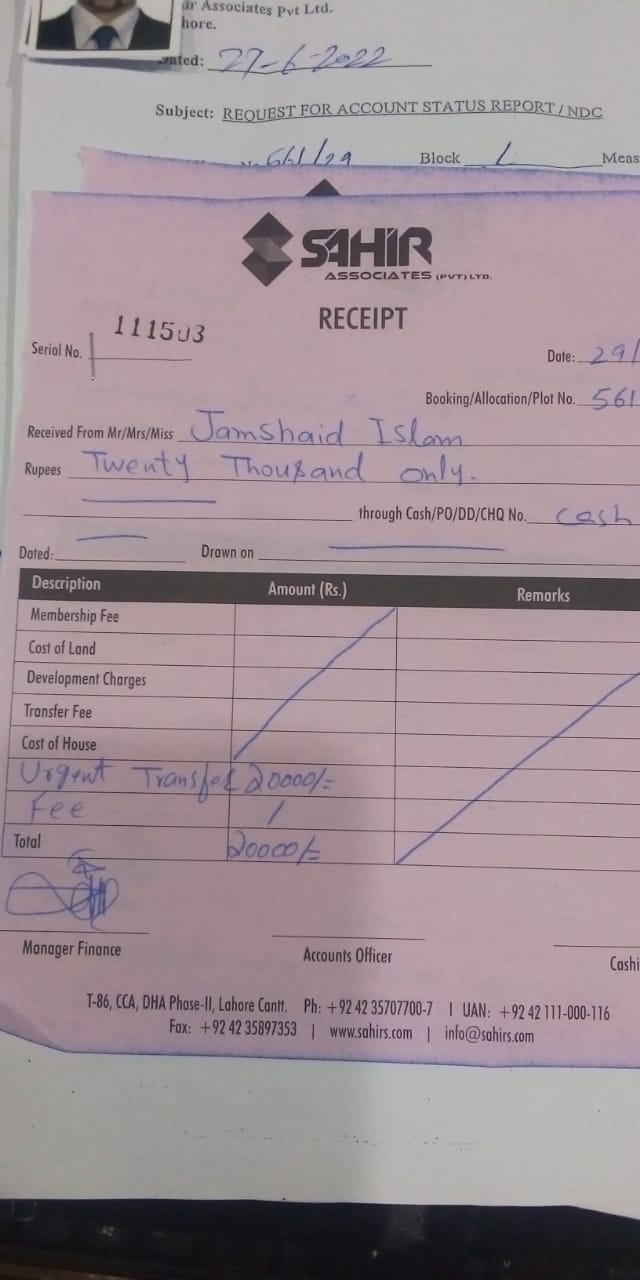 Associates Pvt Ltd.
hore.
ated: 27-6-2022
Subject: REQUEST FOR ACCOUNT STATUS REPORT / NDC
561/29 Block L Meas
SAHIR
ASSOCIATES (PVT) LTD.
RECEIPT
Serial No. 111503
Date: 29/
Booking/Allocation/Plot No. 561
Received From Mr/Mrs/Miss Jamshaid Islam
Rupees Twenty Thousand only.
through Cash/PO/DD/CHQ No. cash
Dated: Drawn on
Description Amount (Rs.) Remarks
Membership Fee
Cost of Land
Development Charges
Transfer Fee
Cost of House
Urgent Transfer 20000/=
Fee
Total 20000/=
Manager Finance Accounts Officer Cashi
T-86, CCA, DHA Phase-II, Lahore Cantt. Ph: +92 42 35707700-7 | UAN: +92 42 111-000-116
Fax: +92 42 35897353 | www.sahirs.com | info@sahirs.com